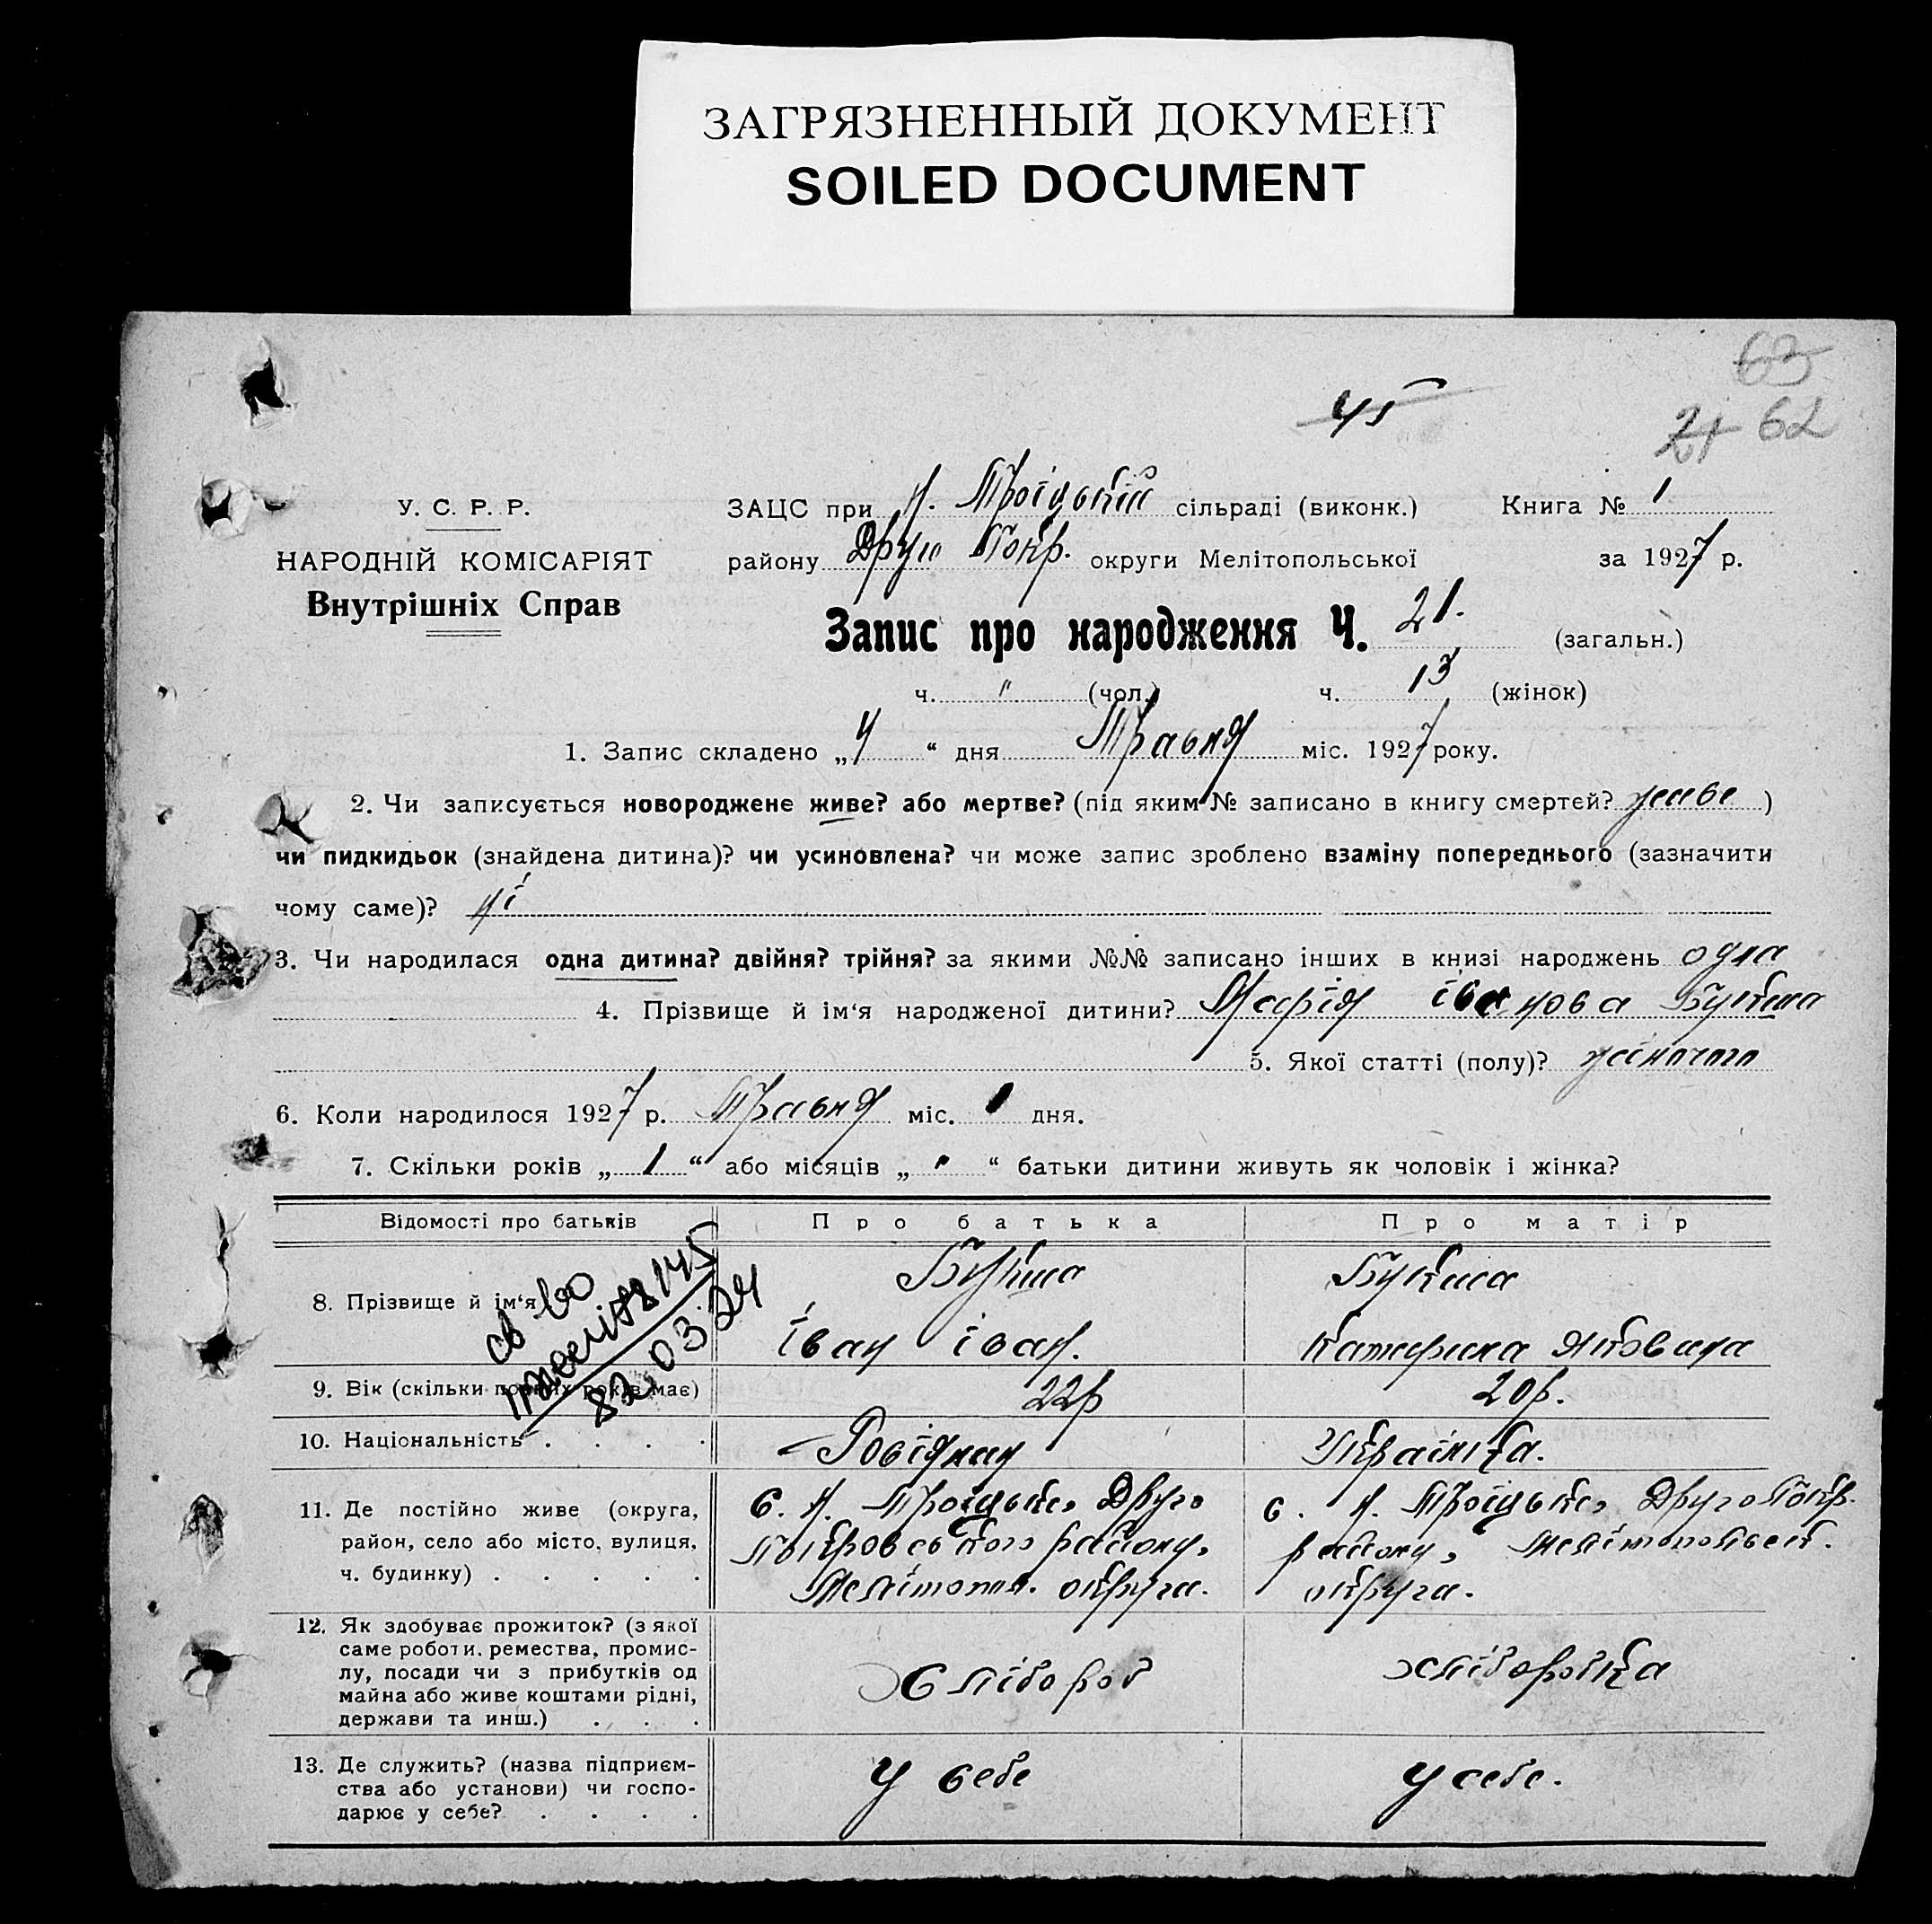 ЗАГРЯЗНЕННЫЙ ДОКУМЕНТ
SOILED DOCUMENT
63
45
21 62
У. С. Р. Р.
НАРОДНІЙ КОМІСАРІЯТ
Внутрішніх Справ
ЗАЦС при Н. Троіцькій сільраді (виконк.) Книга № 1
району Друго Покр. округи Мелітопольської за 1927 р.
Запис про народження Ч. 21. (загальн.)
ч. " (чол.) ч. 13 (жінок)
1. Запис складено „4“ дня Травня міс. 1927 року.
2. Чи записується новороджене живе? або мертве? (під яким № записано в книгу смертей? живе)
чи пидкидьок (знайдена дитина)? чи усиновлена? чи може запис зроблено взаміну попереднього (зазначити
чому саме)? ні
3. Чи народилася одна дитина? двійня? трійня? за якими №№ записано інших в книзі народжень одна
4. Прізвище й ім‘я народженої дитини? Марія Іванова Букша
5. Якої статті (полу)? жіночого
6. Коли народилося 1927 р. Травня міс. 1 дня.
7. Скільки років „1“ або місяців „ “ батьки дитини живуть як чоловік і жінка?
Відомості про батьків Про батька Про матір
8. Прізвище й ім‘я
Букша
Іван Іван.
Букша
Катерина Яковина
82.03.24
9. Вік (скільки повних років має) 22р 20р.
10. Національність . . . . Росіянин Украінка.
11. Де постійно живе (округа,
район, село або місто, вулиця,
ч. будинку) . . . . .
с. Н. Троіцьке, Друго
Покровського району,
Мелітопол. округа.
с. Н. Троіцьке, Друго Покр.
району, Мелітопольськ.
округа.
12. Як здобуває прожиток? (з якої
саме роботи. ремества, промис-
лу, посади чи з прибутків од
майна або живе коштами рідні,
держави та инш.) . . .
Хлібороб
хліборобка
13. Де служить? (назва підприєм-
ства або установи) чи госпо-
дарює у себе? . . . .
У себе
У себе.